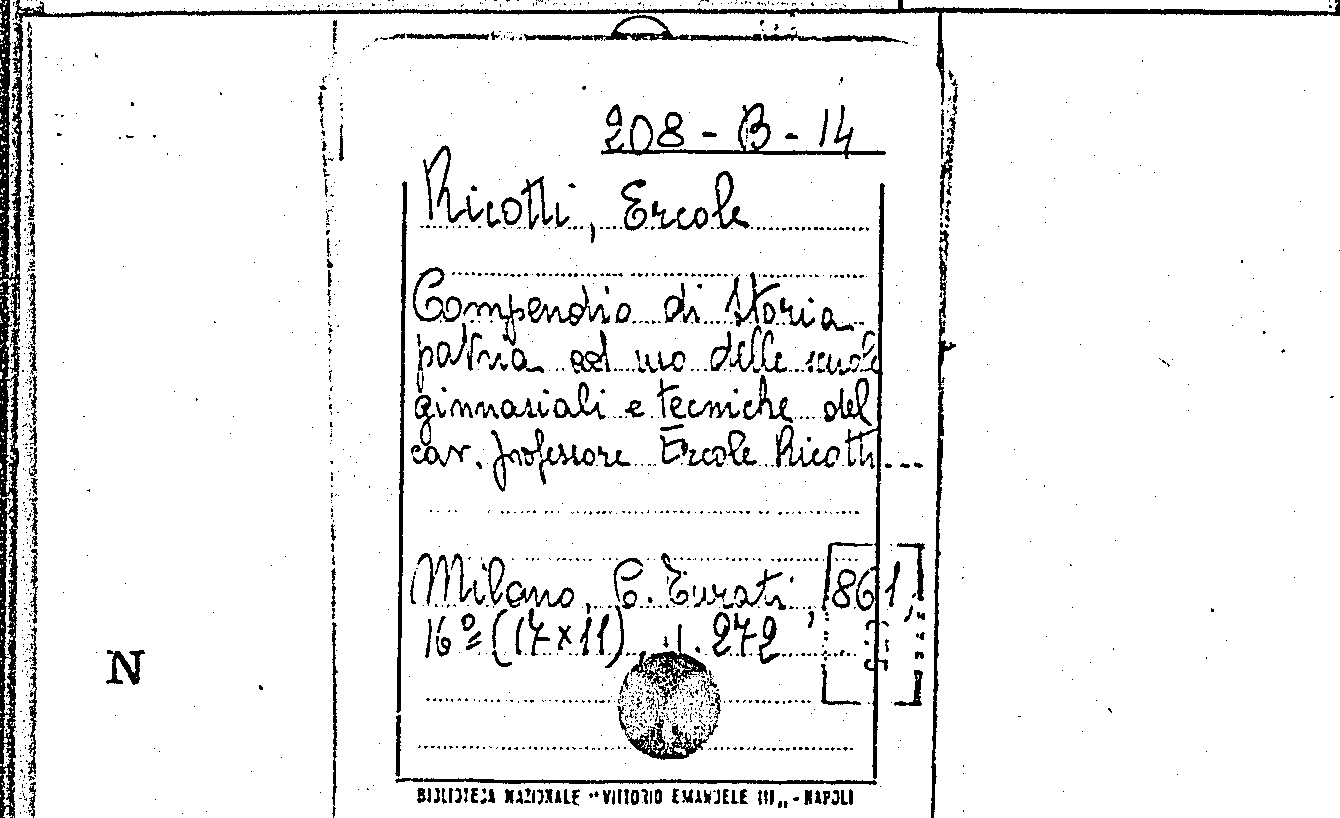 208 - B - 14
Ricotti, Ercole
Compendio di Storia
patria ad uso delle scuole
ginnasiali e tecniche del
cav. professore Ercole Ricotti...
Milano, C. Turati, 1861,
16º (17x11), 272
N
BIBLIOTECA NAZIONALE "VITTORIO EMANUELE III" - NAPOLI